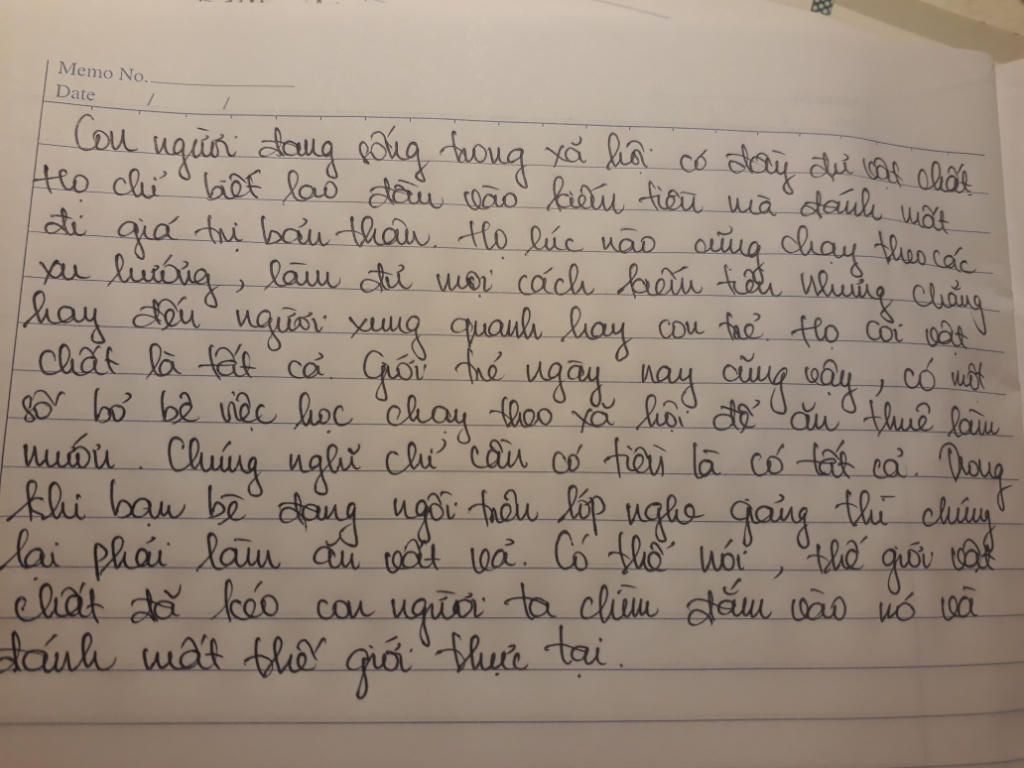 Memo No.
Date / /
Con người đang sống trong xã hội có đầy đủ vật chất
Họ chỉ biết lao đầu vào kiếm tiền mà đánh mất
đi giá trị bản thân. Họ lúc nào cũng chạy theo các
xu hướng, làm đủ mọi cách kiếm tiền nhưng chẳng
hay đến người xung quanh hay con trẻ. Họ coi vật
chất là tất cả. Giới trẻ ngày nay cũng vậy, có một
số bỏ bê việc học chạy theo xã hội để ăn thuê làm
mướn. Chúng nghĩ chỉ cần có tiền là có tất cả. Trong
khi bạn bè đang ngồi trên lớp nghe giảng thì chúng
lại phải làm ăn vất vả. Có thể nói, thế giới vật
chất đã kéo con người ta chìm đắm vào nó và
đánh mất thế giới thực tại.